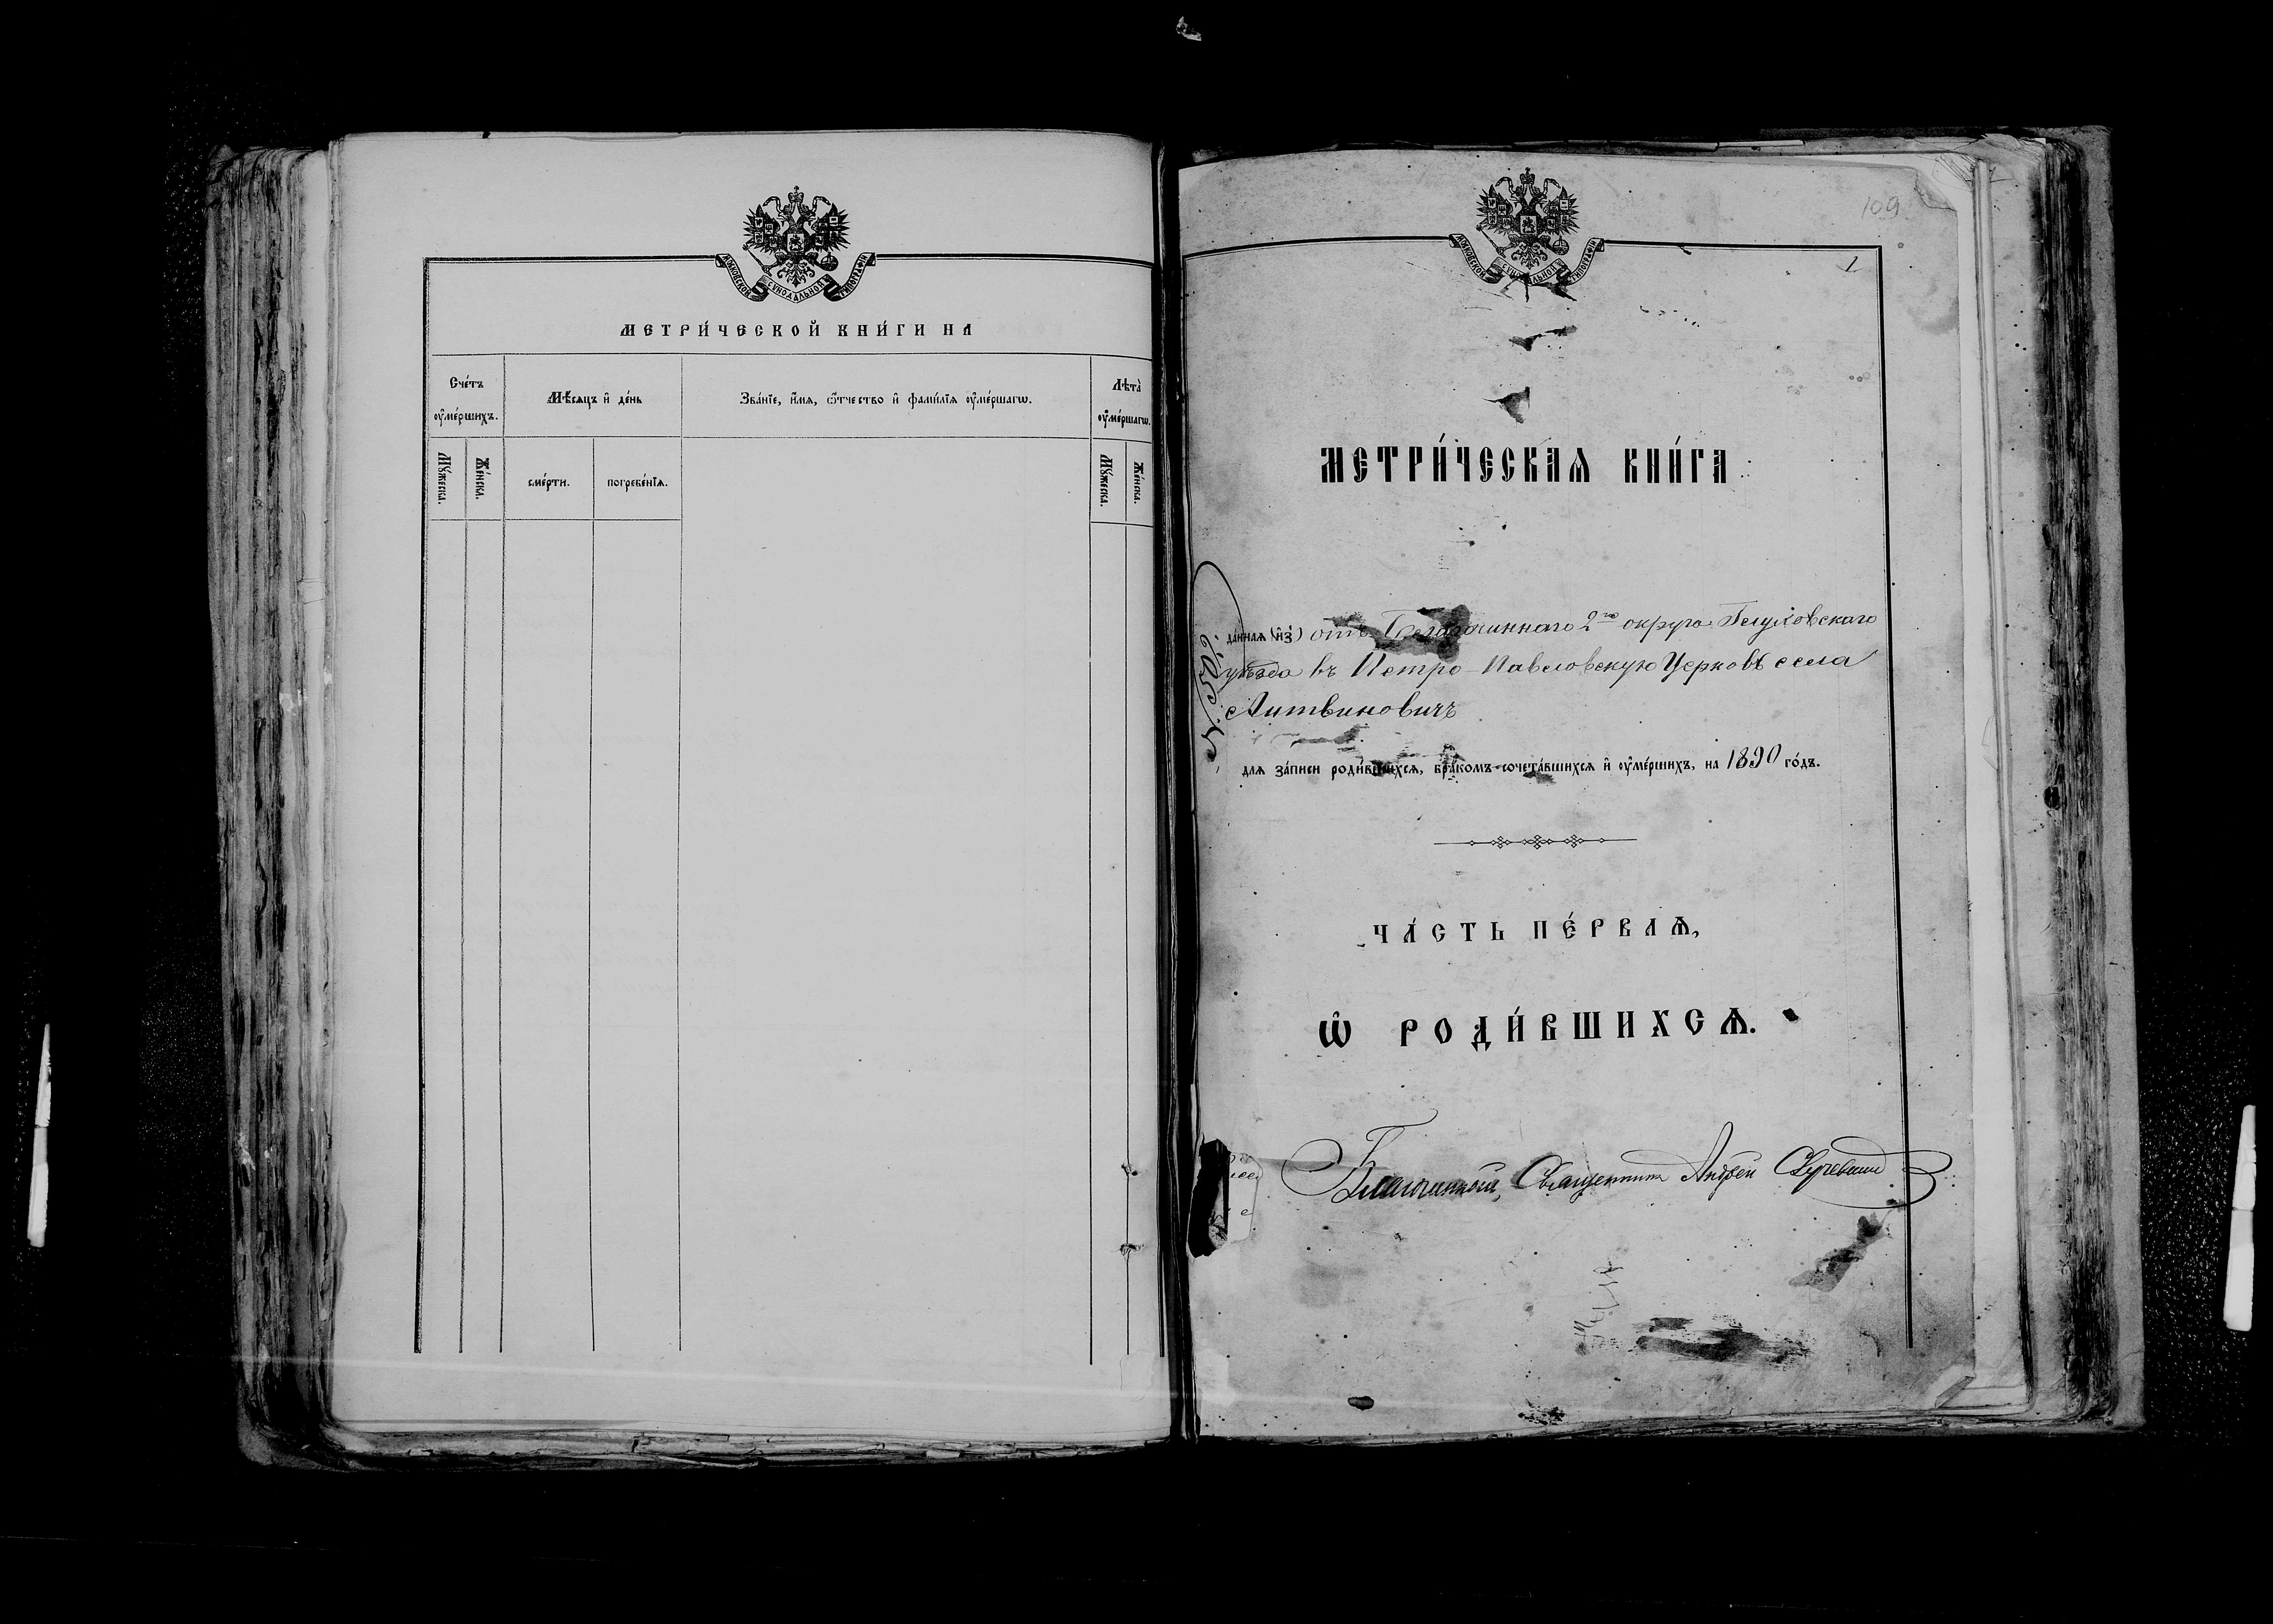 МОСКОВСКОЙ СѴНОДАЛЬНОЙ ТИПОГРАФІИ
МЕТРИ́ЧЕСКОЙ КНИ́ГИ НА
Сче́тъ ᲂу҆ме́ршихъ.
Мѣ́сѧцъ и҆ де́нь
Зва́нїе, и҆́мѧ, ѻ҆́тчество и҆ фами́лїѧ ᲂу҆ме́ршагѡ.
Лѣта̀ ᲂу҆ме́ршагѡ.
Мꙋ́жеска.
Же́нска.
сме́рти.
погребе́нїѧ.
Мꙋ́жеска.
Же́нска.
109
МОСКОВСКОЙ СѴНОДАЛЬНОЙ ТИПОГРАФІИ
1
МЕТРИ́ЧЕСКАѦ КНИ́ГА
да́ннаѧ (и҆з̾) отъ Благочиннаго 2го округа Глуховскаго
уѣзда въ Петро-Павловскую Церковь села
Литвиновичъ
длѧ за́писи роди́вшихсѧ, бра́комъ сочета́вшихсѧ и҆ ᲂу҆ме́ршихъ, на 1890 го́дъ.
ЧА́СТЬ ПЕ́РВАѦ,
Ѡ҆ РОДИ́ВШИХСѦ.
Благочинный, Священникъ Андрей